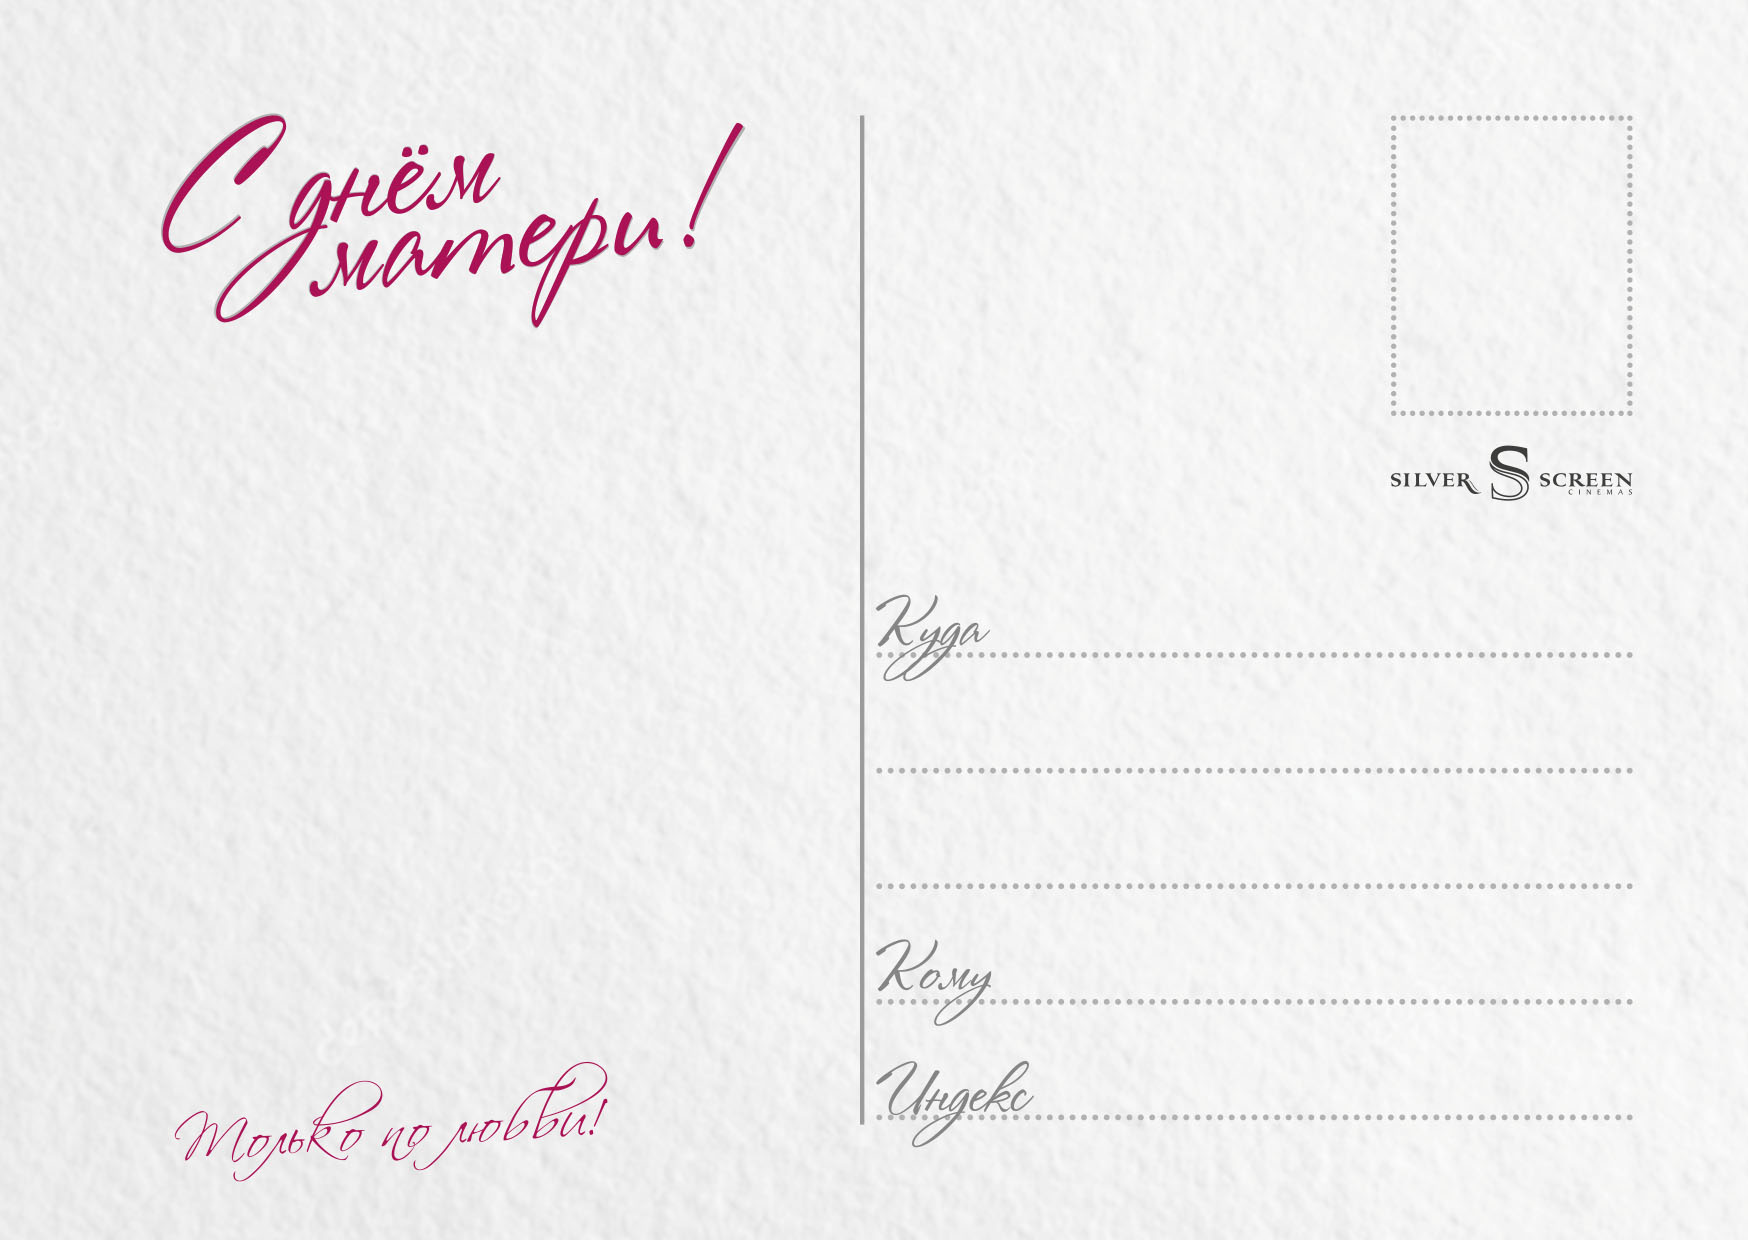 С днём
матери!
SILVER S SCREEN
CINEMAS
Куда
Кому
Индекс
Только по любви!